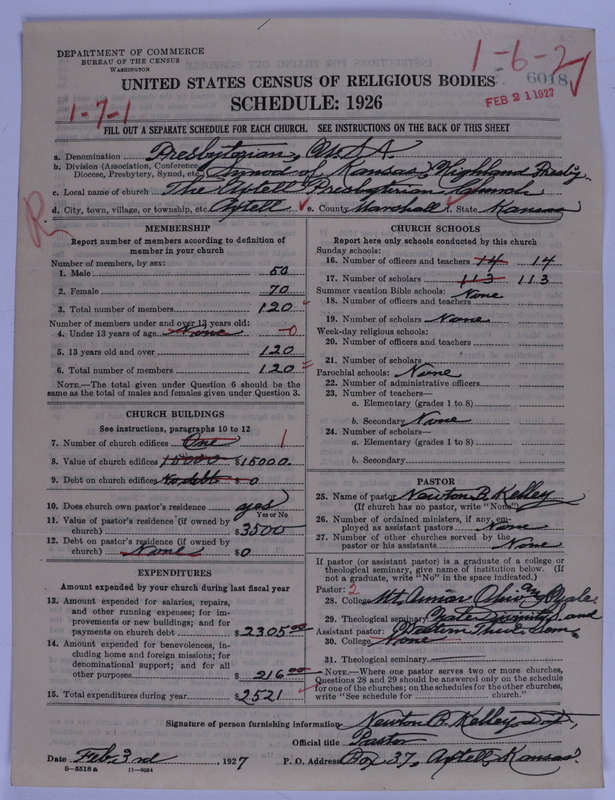 DEPARTMENT OF COMMERCE
BUREAU OF THE CENSUS
WASHINGTON
1-6-2
6018
UNITED STATES CENSUS OF RELIGIOUS BODIES
SCHEDULE: 1926
FEB 21 1927
1-7-1
FILL OUT A SEPARATE SCHEDULE FOR EACH CHURCH. SEE INSTRUCTIONS ON THE BACK OF THIS SHEET
a. Denomination Presbyterian, U.S.A.
b. Division (Association, Conference, Diocese, Presbytery, Synod, etc.) Synod of Kansas, Highland Presby.
c. Local name of church The Axtell Presbyterian Church
d. City, town, village, or township, etc. Axtell e. County Marshall f. State Kansas
R
MEMBERSHIP
Report number of members according to definition of member in your church
Number of members, by sex:
1. Male 50
2. Female 70
3. Total number of members 120
Number of members under and over 13 years old:
4. Under 13 years of age None 0
5. 13 years old and over 120
6. Total number of members 120
NOTE.—The total given under Question 6 should be the same as the total of males and females given under Question 3.
CHURCH BUILDINGS
See instructions, paragraphs 10 to 12
7. Number of church edifices One 1
8. Value of church edifices 15000 $15000.
9. Debt on church edifices No debt $0
10. Does church own pastor's residence yes
Yes or No
11. Value of pastor's residence (if owned by church) $3500
12. Debt on pastor's residence (if owned by church) None $0
EXPENDITURES
Amount expended by your church during last fiscal year
13. Amount expended for salaries, repairs, and other running expenses; for improvements or new buildings; and for payments on church debt $2305.00
14. Amount expended for benevolences, including home and foreign missions; for denominational support; and for all other purposes $216.00
15. Total expenditures during year $2521
CHURCH SCHOOLS
Report here only schools conducted by this church
Sunday schools:
16. Number of officers and teachers 14 14
17. Number of scholars 113 113
Summer vacation Bible schools: None
18. Number of officers and teachers
19. Number of scholars None
Week-day religious schools:
20. Number of officers and teachers
21. Number of scholars
Parochial schools: None
22. Number of administrative officers
23. Number of teachers—
a. Elementary (grades 1 to 8)
b. Secondary None
24. Number of scholars—
a. Elementary (grades 1 to 8)
b. Secondary
PASTOR
25. Name of pastor Newton B. Kelley
(If church has no pastor, write "None")
26. Number of ordained ministers, if any, employed as assistant pastors None
27. Number of other churches served by the pastor or his assistants None
If pastor (or assistant pastor) is a graduate of a college or theological seminary, give name of institution below. (If not a graduate, write "No" in the space indicated.)
Pastor: 2
28. College Mt. Union Ohio, and Yale
29. Theological seminary Yale Divinity S. and
Assistant pastor: Western Theol. Sem.
30. College None
31. Theological seminary
NOTE.—Where one pastor serves two or more churches, Questions 28 and 29 should be answered only on the schedule for one of the churches; on the schedules for the other churches, write "See schedule for church."
Signature of person furnishing information Newton B. Kelley
Official title Pastor
Date Feb. 3rd, 1927 P. O. Address Box 37, Axtell, Kansas.
8-5518 a 11-9054